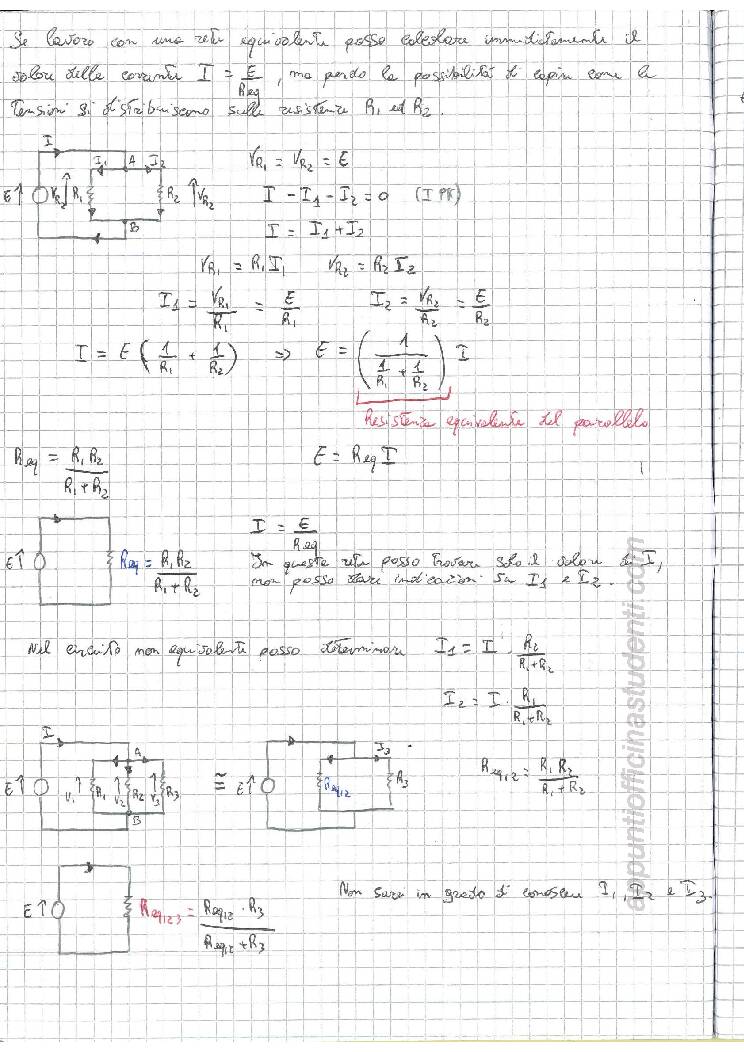 Se lavoro con una rete equivalente posso calcolare immediatamente il
valore della corrente I = E/Req , ma perdo la possibilità di capire come le
tensioni si distribuiscono sulle resistenze R1 ed R2.
I
I1 A I2
E VR2 R1 R2 VR2
B
VR1 = VR2 = E
I - I1 - I2 = 0 (I PK)
I = I1 + I2
VR1 = R1 I1 VR2 = R2 I2
I1 = VR1/R1 = E/R1 I2 = VR2/R2 = E/R2
I = E (1/R1 + 1/R2) => E = (1/(1/R1 + 1/R2)) I
Resistenza equivalente del parallelo
Req = R1R2/(R1+R2) E = Req I
E Req = R1R2/(R1+R2)
I = E/Req
In questa rete posso trovare solo il valore di I,
non posso dare indicazioni su I1 e I2.
Nel circuito non equivalente posso determinare I1 = I · R2/(R1+R2)
I2 = I · R1/(R1+R2)
I
A
E V1 R1 V2 R2 V3 R3
B
≅
I3
E Req12 R3
Req12 = R1R2/(R1+R2)
E Req123 = Req12 · R3/(Req12 + R3)
Non sarei in grado di conoscere I1, I2 e I3.
appuntiofficinastudenti.com